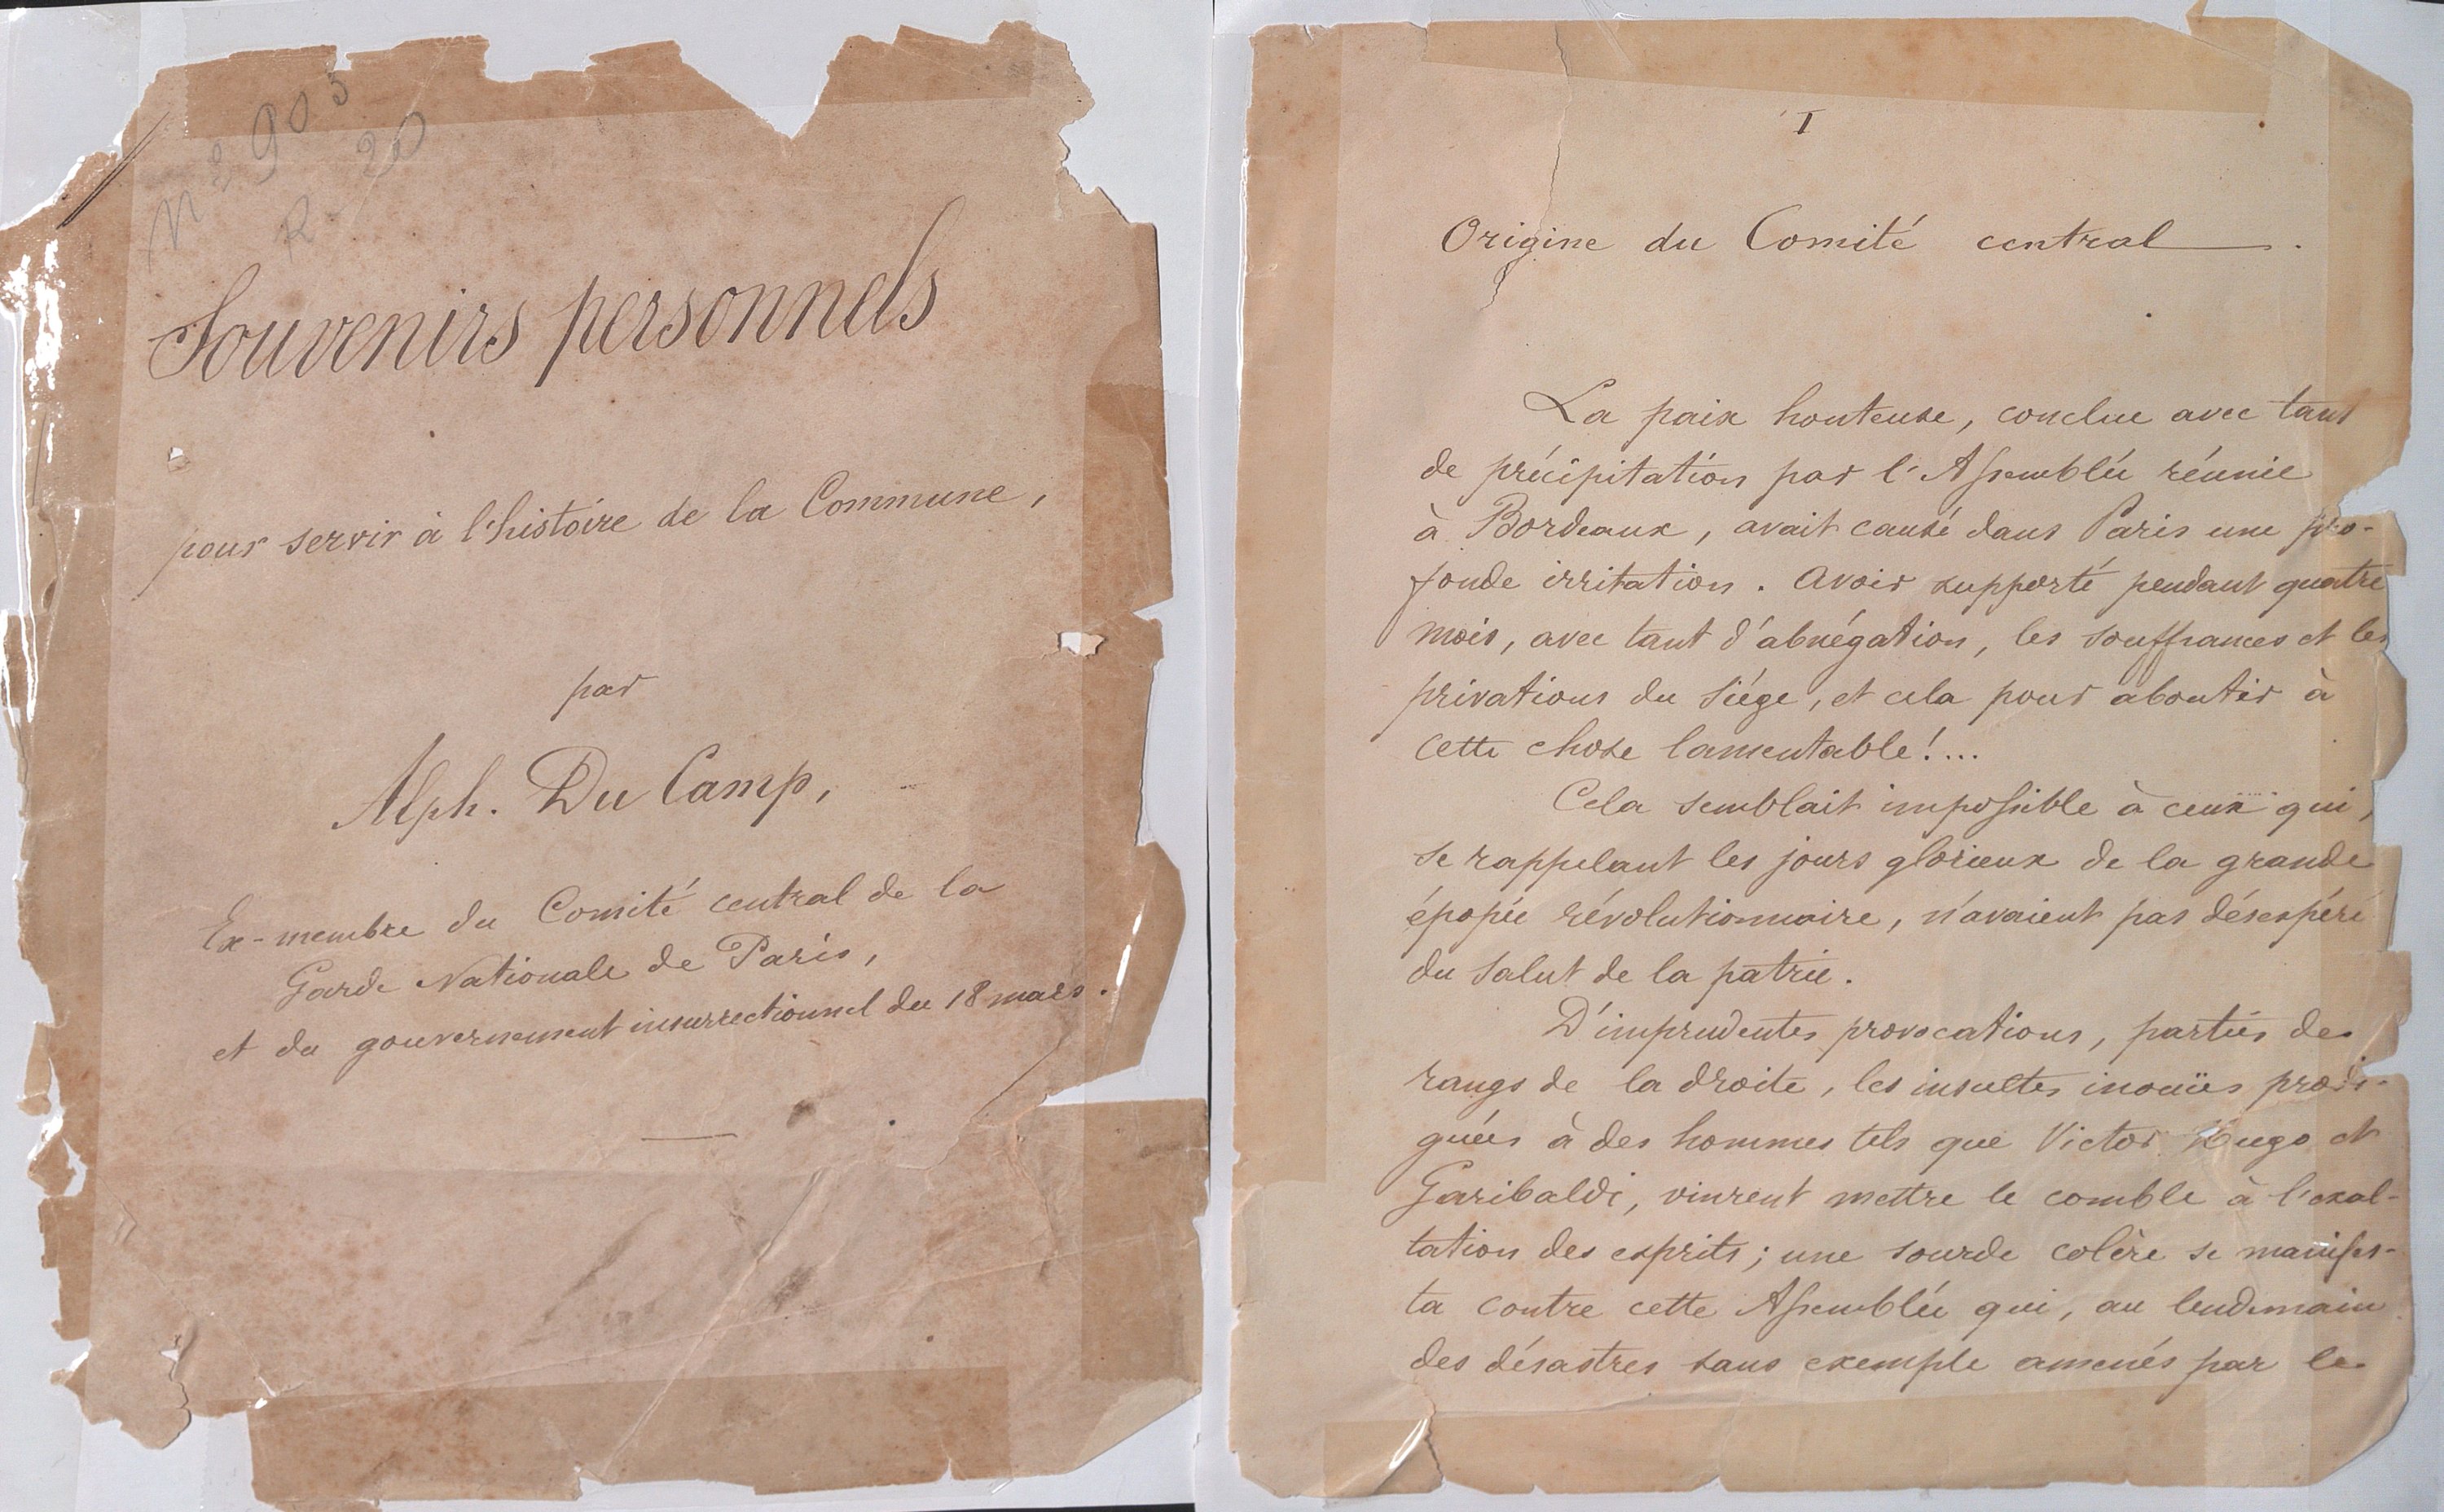 Nº 903
R 20
Souvenirs personnels
pour servir à l'histoire de la Commune,
par
Alph. Du Camp,
Ex-membre du Comité central de la
Garde Nationale de Paris,
et du gouvernement insurrectionnel du 18 mars.
I
Origine du Comité central.
La paix honteuse, conclue avec tant
de précipitation par l'Assemblée réunie
à Bordeaux, avait causé dans Paris une pro-
fonde irritation. Avoir supporté pendant quatre
mois, avec tant d'abnégation, les souffrances et les
privations du siége, et cela pour aboutir à
cette chose lamentable!...
Cela semblait impossible à ceux qui,
se rappelant les jours glorieux de la grande
épopée révolutionnaire, n'avaient pas désespéré
du salut de la patrie.
D'imprudentes provocations, parties des
rangs de la droite, les insultes inouïes prodi-
guées à des hommes tels que Victor Hugo et
Garibaldi, vinrent mettre le comble à l'exal-
tation des esprits; une sourde colère se manifes-
ta contre cette Assemblée qui, au lendemain
des désastres sans exemple amenés par le